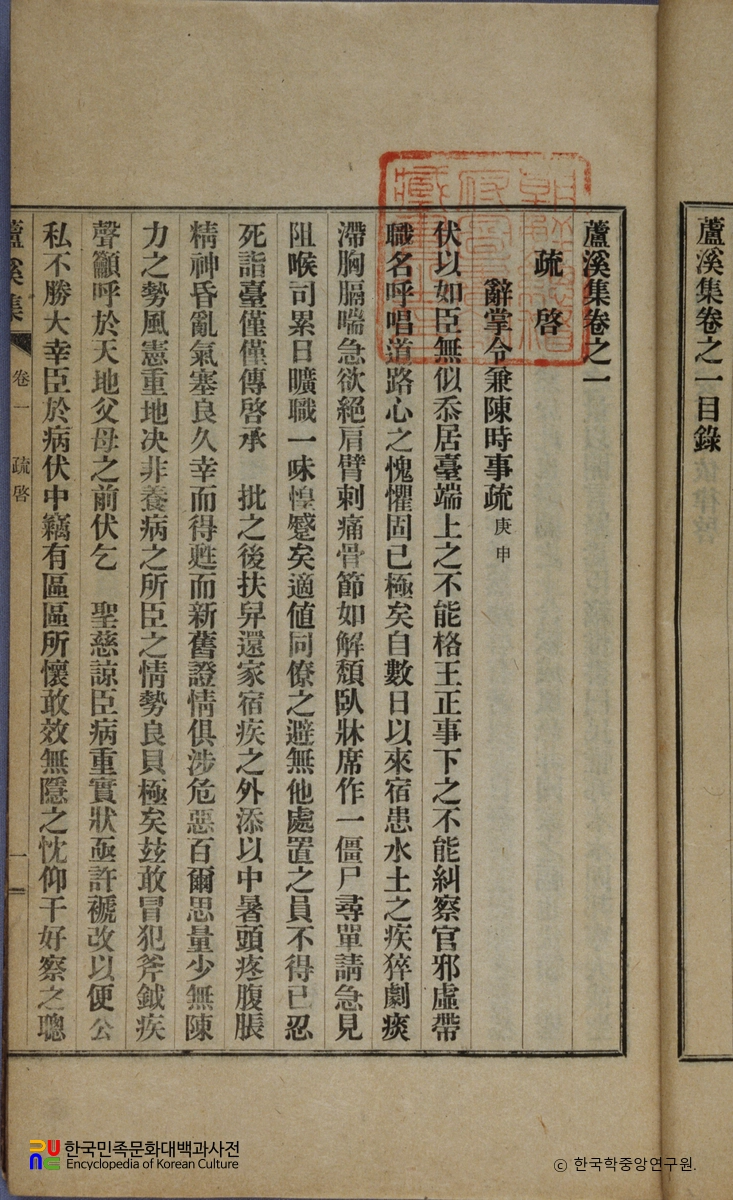 蘆溪集卷之一目錄
蘆溪集卷之一
疏啓
辭掌令兼陳時事疏庚申
伏以如臣無似忝居臺端上之不能格王正事下之不能糾察官邪虛帶
職名呼唱道路心之愧懼固已極矣自數日以來宿患水土之疾猝劇痰
滯胸膈喘急欲絕肩臂刺痛骨節如解頹臥牀席作一僵尸尋單請急見
阻喉司累日曠職一味惶蹙矣適値同僚之避無他處置之員不得已忍
死詣臺僅僅傳啓承 批之後扶舁還家宿疾之外添以中暑頭疼腹脹
精神昏亂氣塞良久幸而得甦而新舊證情俱涉危惡百爾思量少無陳
力之勢風憲重地決非養病之所臣之情勢良貝極矣玆敢冒犯斧鉞疾
聲籲呼於天地父母之前伏乞 聖慈諒臣病重實狀亟許褫改以便公
私不勝大幸臣於病伏中竊有區區所懷敢效無隱之忱仰干好察之聰
蘆溪集 卷一 疏啓 一
한국민족문화대백과사전
Encyclopedia of Korean Culture
ⓒ 한국학중앙연구원.